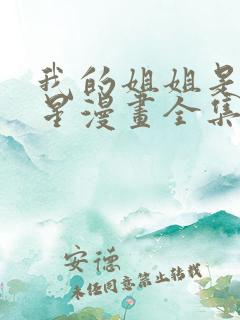 我的姐姐是
星漫畫全集
安德
未经同意禁止转载